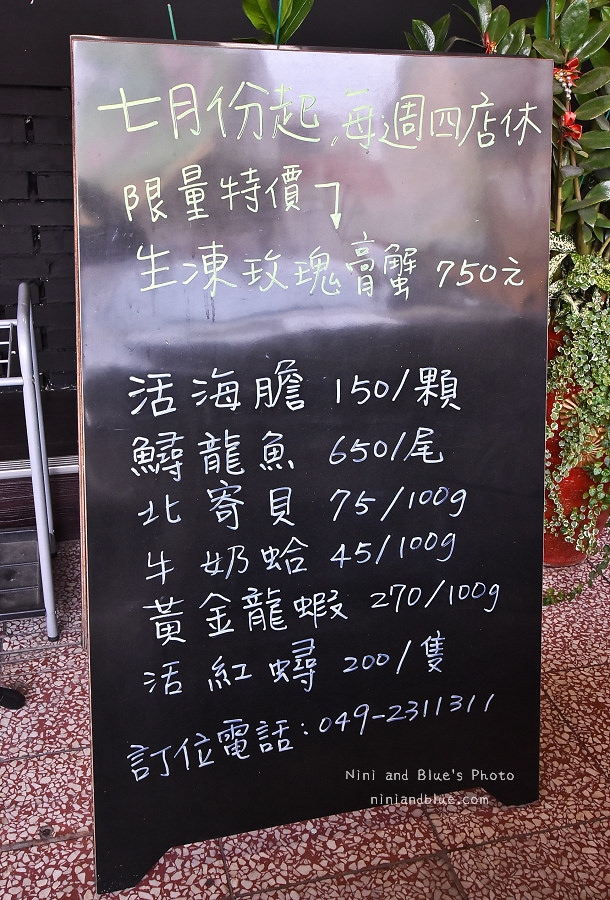 七月份起,每週四店休
限量特價
生凍玫瑰膏蟹 750元
活海膽 150/顆
鱘龍魚 650/尾
北寄貝 75/100g
牛奶蛤 45/100g
黃金龍蝦 270/100g
活紅蟳 200/隻
訂位電話:049-2311311
Nini and Blue's Photo
niniandblue.com